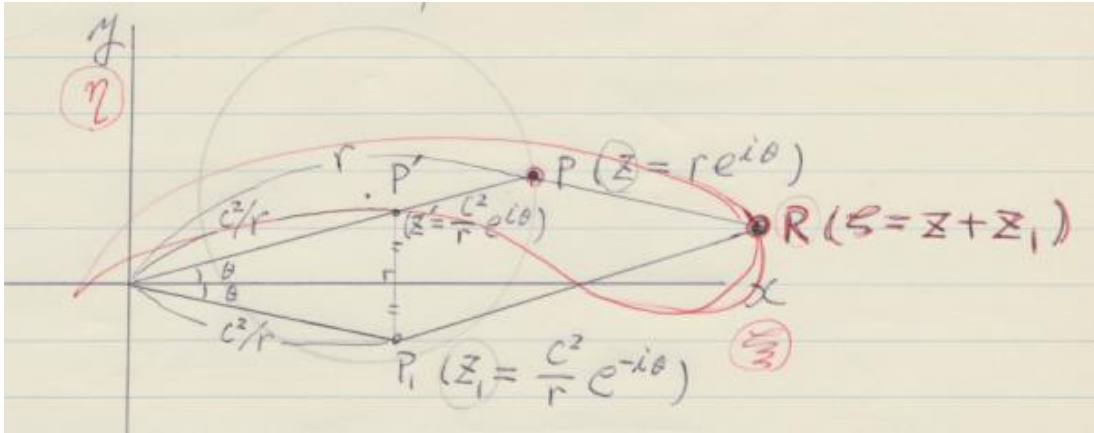 y
η
r
P'
P (z = re^{iθ})
c²/r
(z' = c²/r e^{iθ})
R (ζ = z + z₁)
θ
θ
x
c²/r
ξ
P₁ (z₁ = c²/r e^{-iθ})